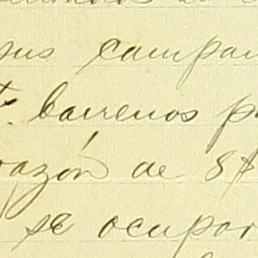 sus campa
barrenos p
razón de 8
se ocupar